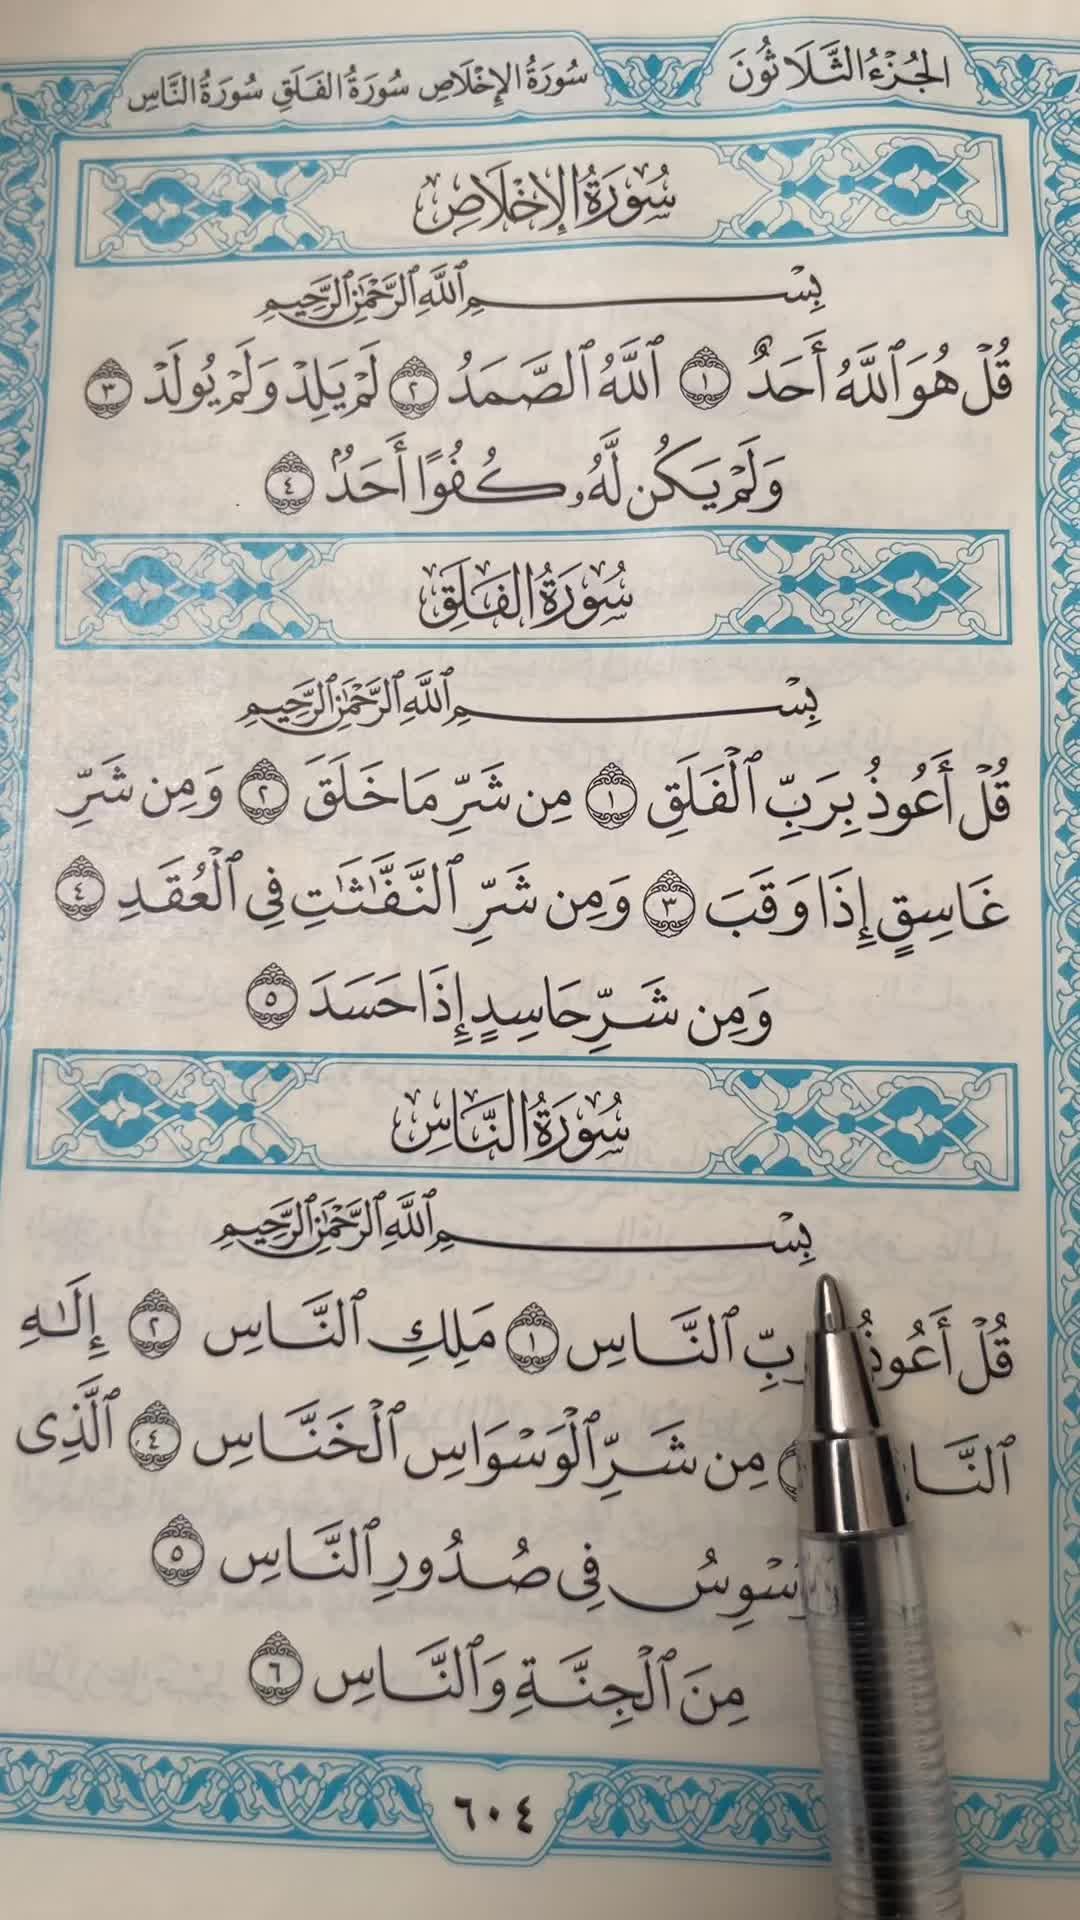 الجُزْءُ الثَّلَاثُونَ سُورَةُ الإِخْلَاصِ سُورَةُ الفَلَقِ سُورَةُ النَّاسِ
سُورَةُ الإِخْلَاصِ
بِسْمِ ٱللَّهِ ٱلرَّحْمَٰنِ ٱلرَّحِيمِ
قُلْ هُوَ ٱللَّهُ أَحَدٌ ١ ٱللَّهُ ٱلصَّمَدُ ٢ لَمْ يَلِدْ وَلَمْ يُولَدْ ٣
وَلَمْ يَكُن لَّهُۥ كُفُوًا أَحَدٌۢ ٤
سُورَةُ الفَلَقِ
بِسْمِ ٱللَّهِ ٱلرَّحْمَٰنِ ٱلرَّحِيمِ
قُلْ أَعُوذُ بِرَبِّ ٱلْفَلَقِ ١ مِن شَرِّ مَا خَلَقَ ٢ وَمِن شَرِّ
غَاسِقٍ إِذَا وَقَبَ ٣ وَمِن شَرِّ ٱلنَّفَّٰثَٰتِ فِى ٱلْعُقَدِ ٤
وَمِن شَرِّ حَاسِدٍ إِذَا حَسَدَ ٥
سُورَةُ النَّاسِ
بِسْمِ ٱللَّهِ ٱلرَّحْمَٰنِ ٱلرَّحِيمِ
قُلْ أَعُوذُ ٱلنَّاسِ ١ مَلِكِ ٱلنَّاسِ ٢ إِلَٰهِ
مِن شَرِّ ٱلْوَسْوَاسِ ٱلْخَنَّاسِ ٤ ٱلَّذِى
فِى صُدُورِ ٱلنَّاسِ ٥
مِنَ ٱلْجِنَّةِ وَٱلنَّاسِ ٦
٦٠٤